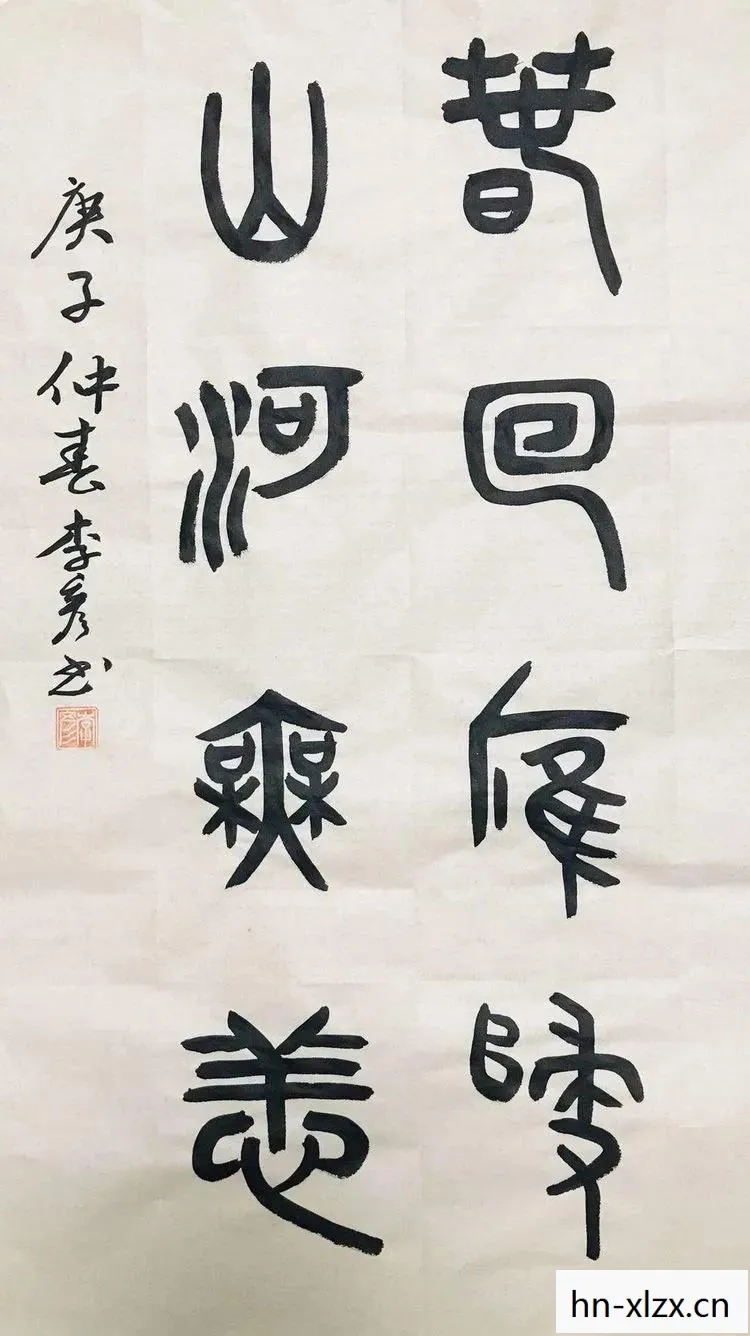 春回雁歸
山河無恙
庚子仲春李彦书
hn-xlzx.cn